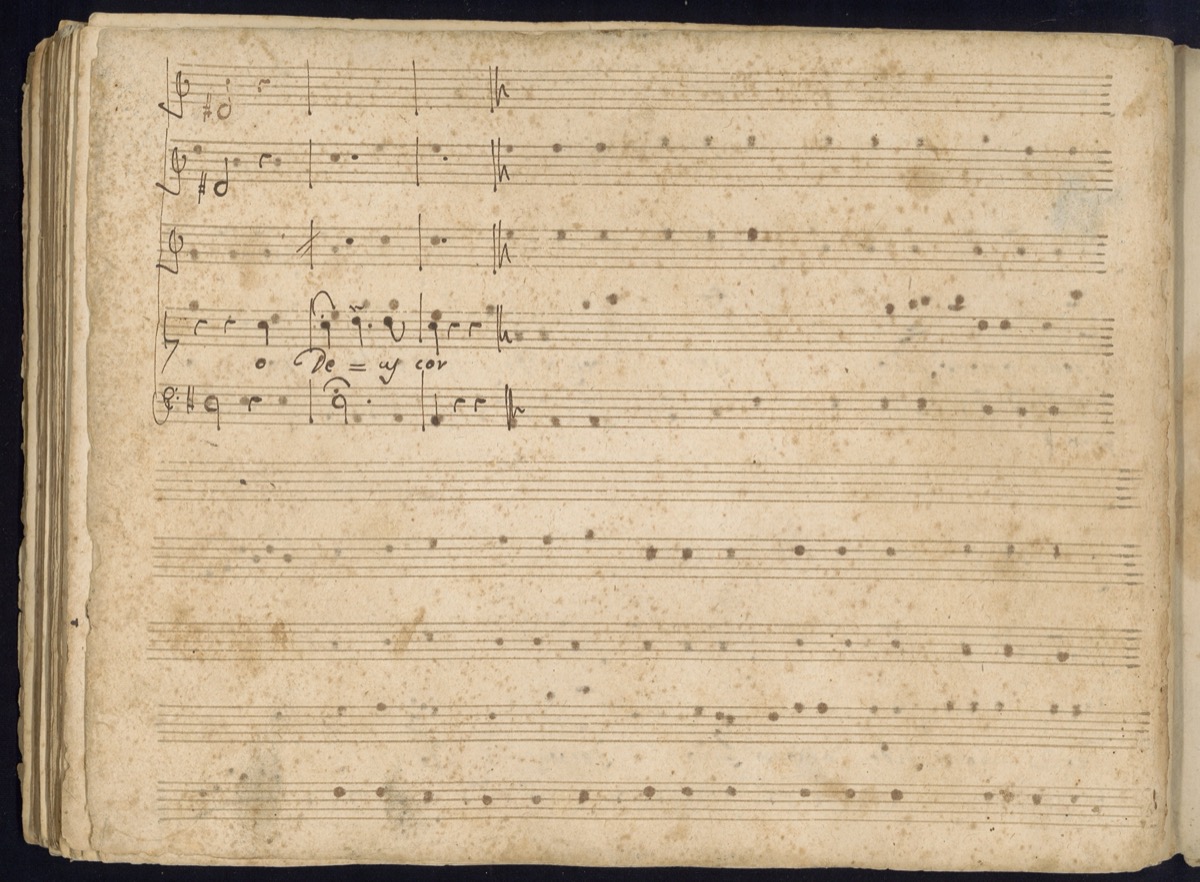 o De = us cor